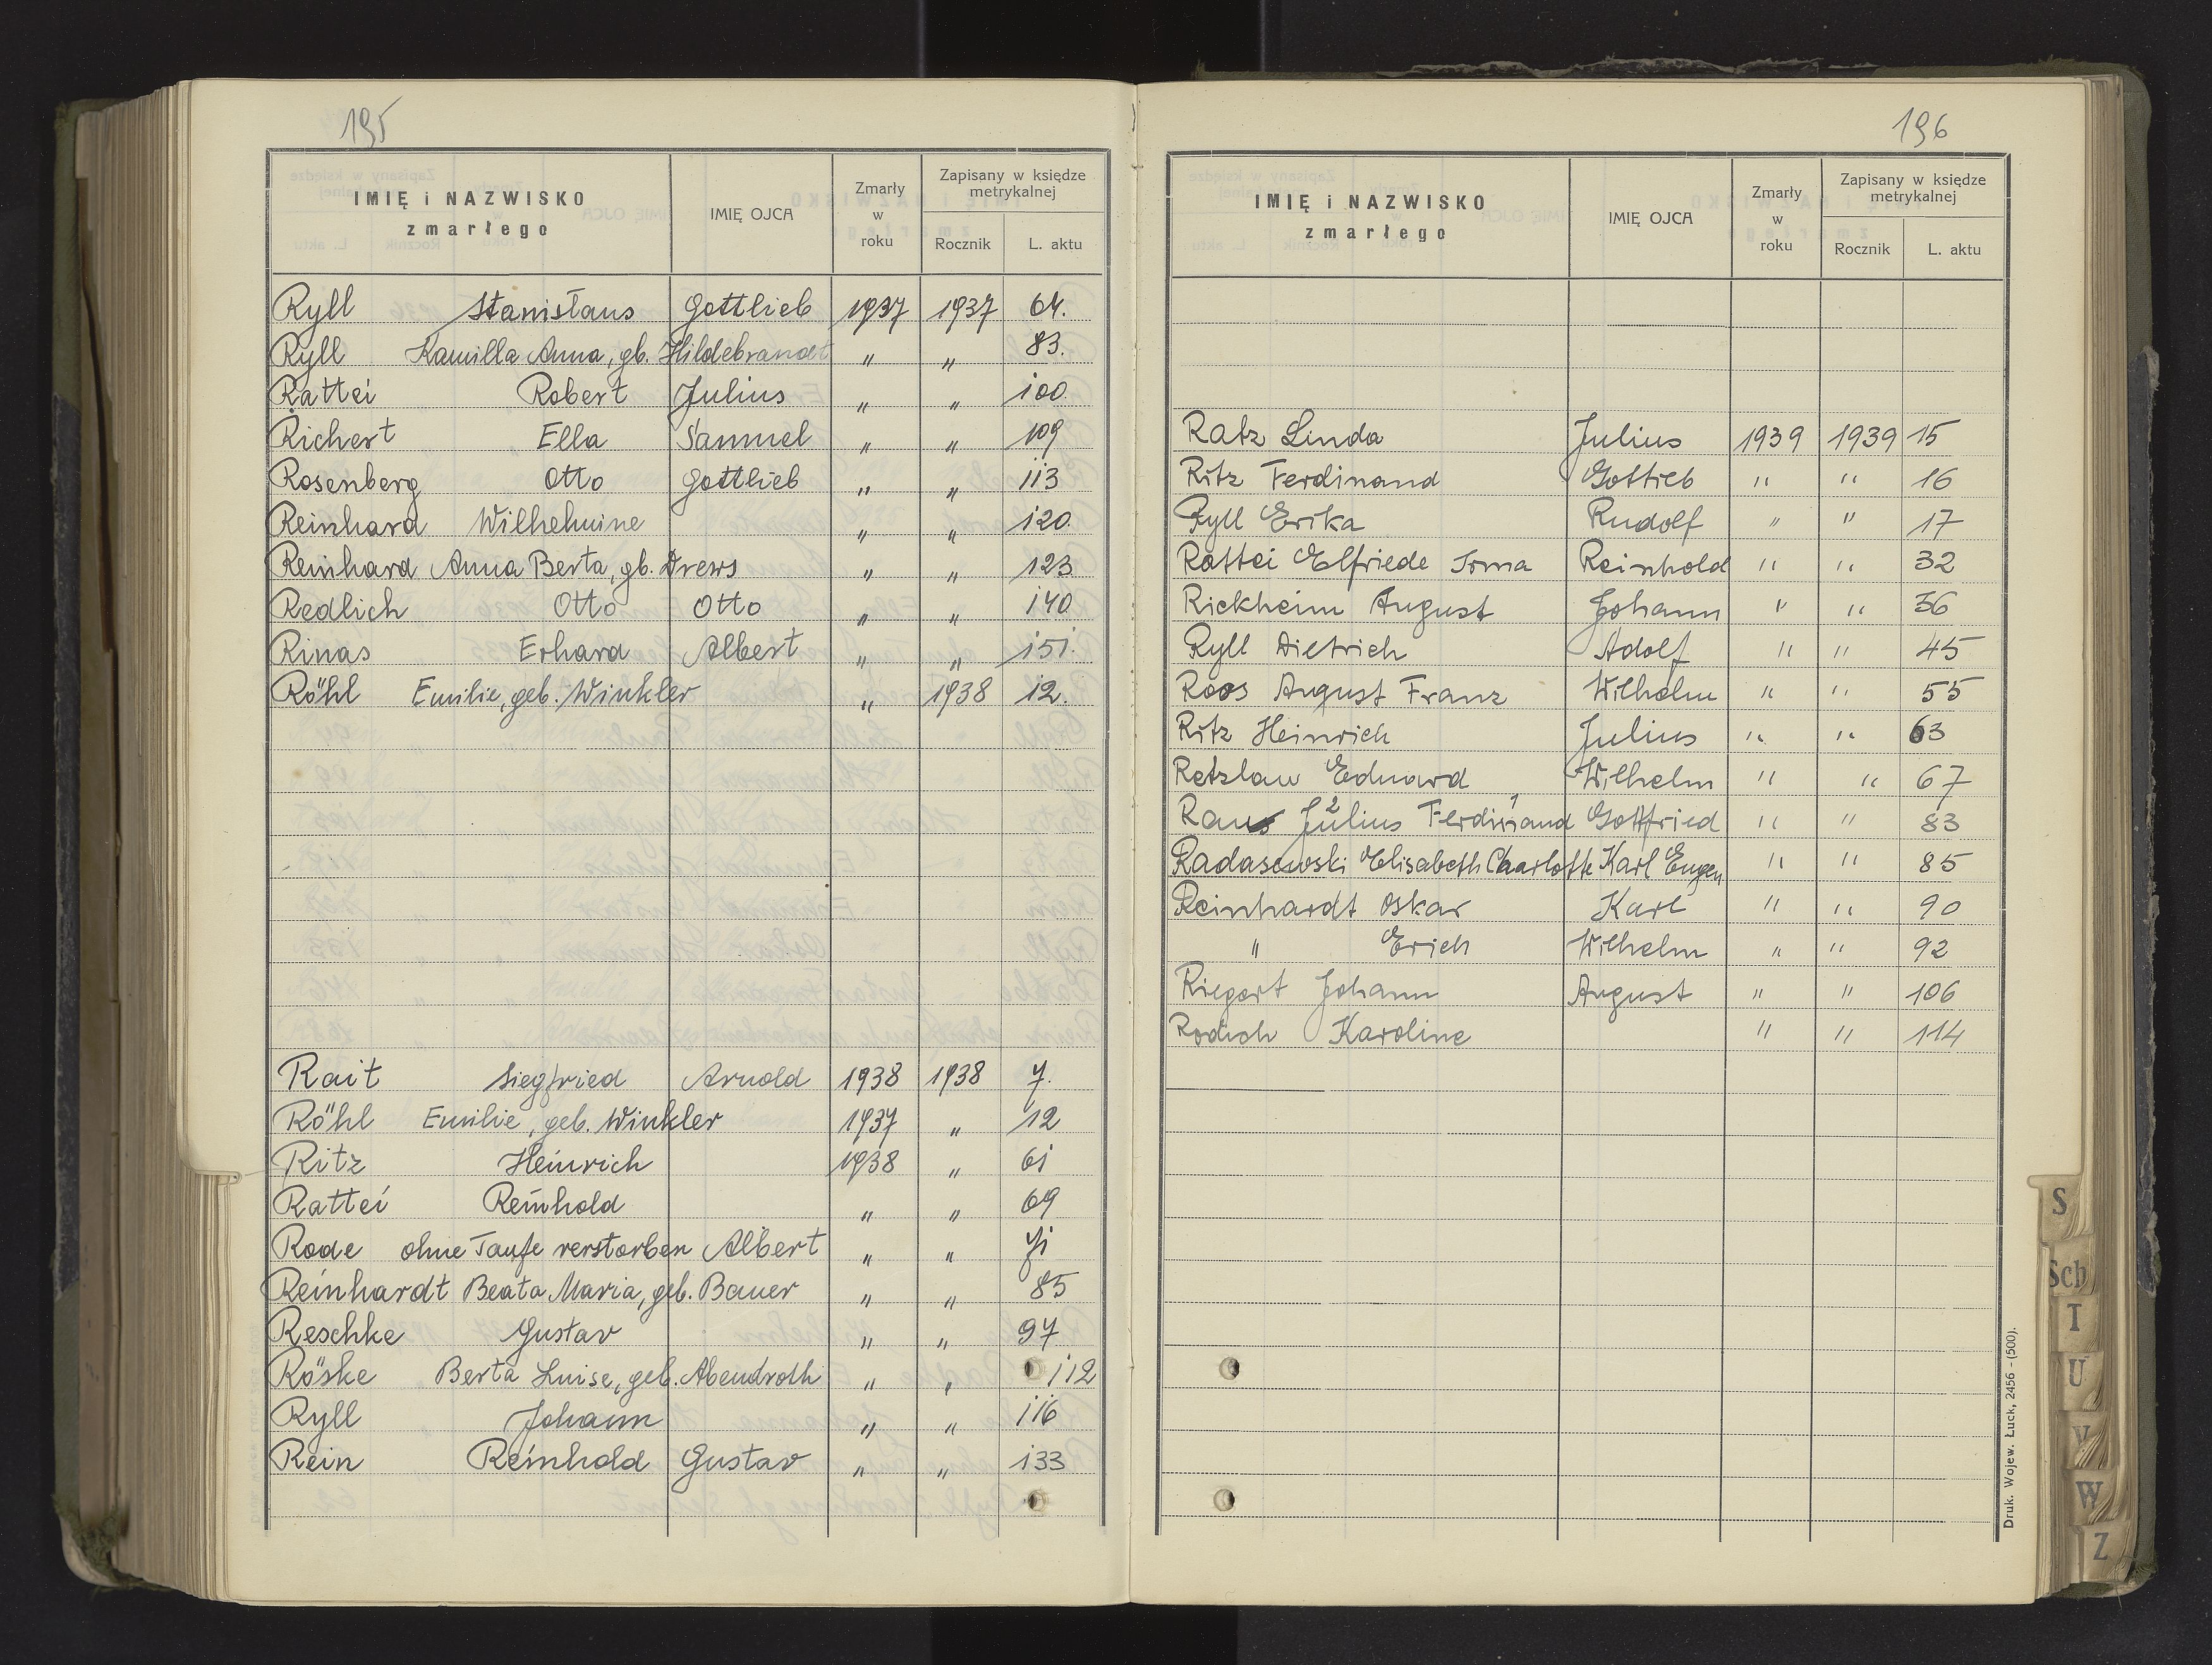 195
IMIĘ i NAZWISKO zmarłego IMIĘ OJCA Zmarły w roku Zapisany w księdze metrykalnej Rocznik L. aktu
Ryll Stanisłaus Gottlieb 1937 1937 64.
Ryll Kamilla Anna, gb. Hildebrandt " " 83.
Rattei Robert Julius " " 100.
Richert Ella Samuel " " 109
Rosenberg Otto Gottlieb " " 113
Reinhard Wilhelmine " " 120.
Reinhard Anna Berta, gb. Drews " " 123
Redlich Otto Otto " " 140
Rinas Erhard Albert " " 151.
Röhl Emilie, geb. Winkler " 1938 12.
Rait Siegfried Arnold 1938 1938 7.
Röhl Emilie, geb. Winkler 1937 " 12
Ritz Heinrich 1938 " 61
Rattei Reinhold " " 69
Rode ohne Taufe verstorben Albert " " 71
Reinhardt Beata Maria, geb. Bauer " " 85
Reschke Gustav " " 97
Röske Berta Luise, geb. Abendroth " " 112
Ryll Johann " " 116
Rein Reinhold Gustav " " 133
196
IMIĘ i NAZWISKO zmarłego IMIĘ OJCA Zmarły w roku Zapisany w księdze metrykalnej Rocznik L. aktu
Ratz Linda Julius 1939 1939 15
Ritz Ferdinand Gottieb " " 16
Ryll Erika Rudolf " " 17
Rattei Elfriede Irma Reinhold " " 32
Rickheim August Johann " " 36
Ryll Dietrich Adolf " " 45
Roos August Franz Wilhelm " " 55
Ritz Heinrich Julius " " 63
Retzlau Eduard Wilhelm " " 67
Julius 2 Ferdinand 1 Gottfried " " 83
Radasewski Elisabeth Charlotte Karl Eugen " " 85
Reinhardt Oskar Karl " " 90
" Erich Wilhelm " " 92
Riegert Johann August " " 106
Rodich Karoline " " 114
Druk. Wojew. Łuck, 2456 – (500).
S
Sch
T
U
V
W
Z